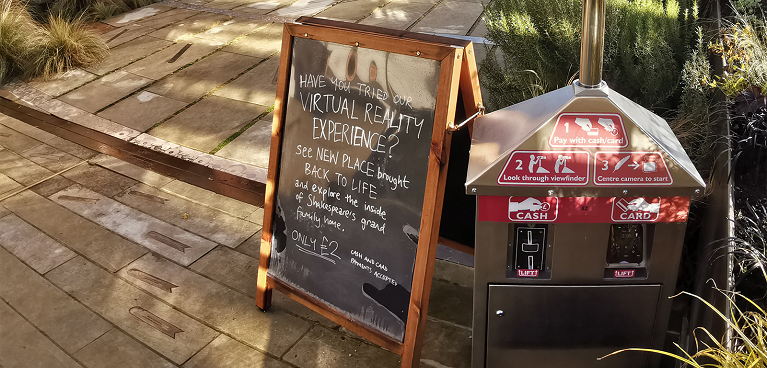 HAVE YOU TRIED OUR
VIRTUAL REALITY
EXPERIENCE?
see NEW PLACE brought
BACK TO LIFE
and explore the inside
of Shakespeare's grand
family home.
ONLY £2
CASH AND CARD
PAYMENTS ACCEPTED
1
Pay with cash/card
2
Look through viewfinder
3
Centre camera to start
CASH
CARD
LIFT
LIFT